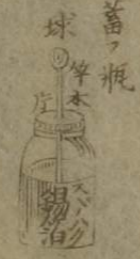 蓄フ瓶
球
竿
木
錫泊